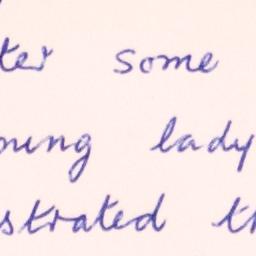 ter some
oung lady
strated th